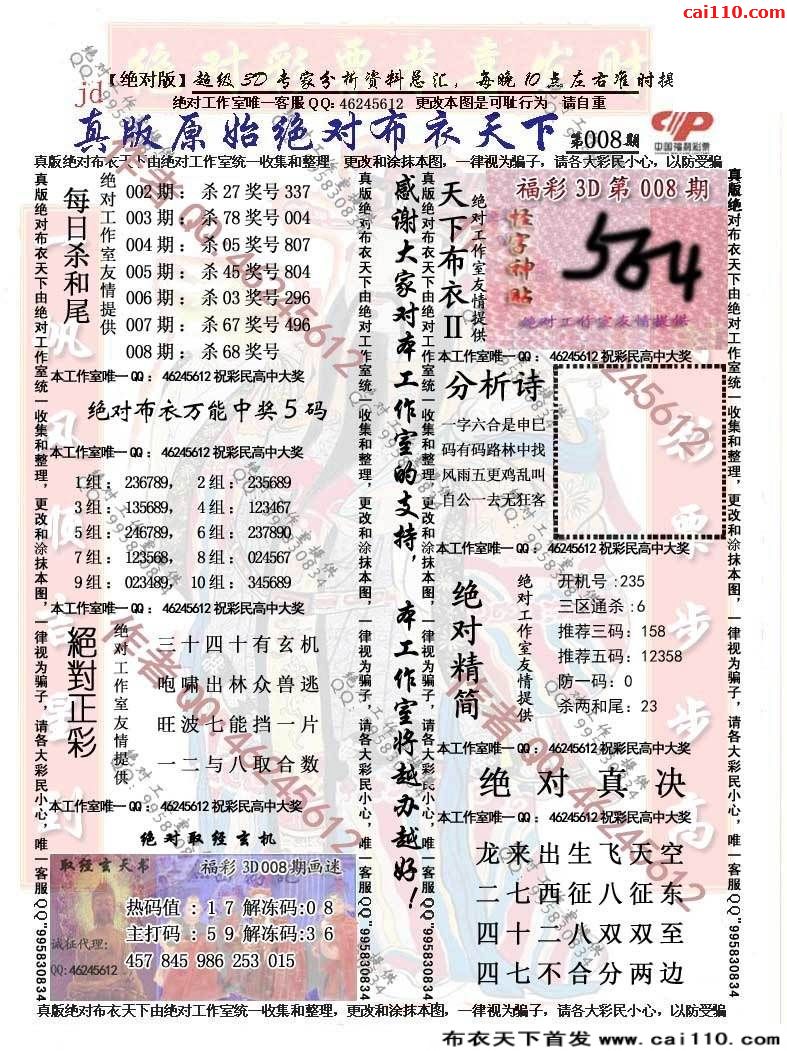 cai110.com
【绝对版】超级3D专家分析资料总汇，每晚10点左右准时提
jd
绝对工作室唯一客服QQ：46245612 更改本图是可耻行为 请自重
真版原始绝对布衣天下 第008期
中国福利彩票
真版绝对布衣天下由绝对工作室统一收集和整理，更改和涂抹本图，一律视为骗子，请各大彩民小心，以防受骗
真版绝对布衣天下由绝对工作室统一收集和整理，更改和涂抹本图，一律视为骗子，请各大彩民小心，唯一客服QQ"995830834
每日杀和尾
绝对工作室友情提供
002期：杀27奖号337
003期：杀78奖号004
004期：杀05奖号807
005期：杀45奖号804
006期：杀03奖号296
007期：杀67奖号496
008期：杀68奖号
本工作室唯一QQ：46245612祝彩民高中大奖
绝对布衣万能中奖5码
本工作室唯一QQ：46245612祝彩民高中大奖
1组：236789，2组：235689
3组：135689，4组：123467
5组：246789，6组：237890
7组：123568，8组：024567
9组：023489，10组：345689
本工作室唯一QQ：46245612祝彩民高中大奖
絕對正彩
绝对工作室友情提供
三十四十有玄机
咆啸出林众兽逃
旺波七能挡一片
一二与八取合数
本工作室唯一QQ：46245612祝彩民高中大奖
绝对取经玄机
取经玄天书 福彩3D008期画谜
热码值：17解冻码：08
主打码：59解冻码：36
457 845 986 253 015
诚征代理：
QQ:46245612
真版绝对布衣天下由绝对工作室统一收集和整理，更改和涂抹本图，一律视为骗子，请各大彩民小心，唯一客服QQ"995830834
感谢大家对本工作室的支持，本工作室将越办越好！
真版绝对布衣天下由绝对工作室统一收集和整理，更改和涂抹本图，一律视为骗子，请各大彩民小心，唯一客服QQ"995830834
天下布衣II
绝对工作室友情提供
福彩3D第008期
怪字神贴
564
绝对工作室友情提供
本工作室唯一QQ：46245612祝彩民高中大奖
分析诗
一字六合是申巳
码有码路林中找
风雨五更鸡乱叫
自公一去无狂客
本工作室唯一QQ：46245612祝彩民高中大奖
绝对精简
绝对工作室友情提供
开机号：235
三区通杀：6
推荐三码：158
推荐五码：12358
防一码：0
杀两和尾：23
本工作室唯一QQ：46245612祝彩民高中大奖
绝对真决
本工作室唯一QQ：46245612祝彩民高中大奖
龙来出生飞天空
二七西征八征东
四十二八双双至
四七不合分两边
真版绝对布衣天下由绝对工作室统一收集和整理，更改和涂抹本图，一律视为骗子，请各大彩民小心，唯一客服QQ"995830834
真版绝对布衣天下由绝对工作室统一收集和整理，更改和涂抹本图，一律视为骗子，请各大彩民小心，以防受骗
布衣天下首发 www.cai110.com